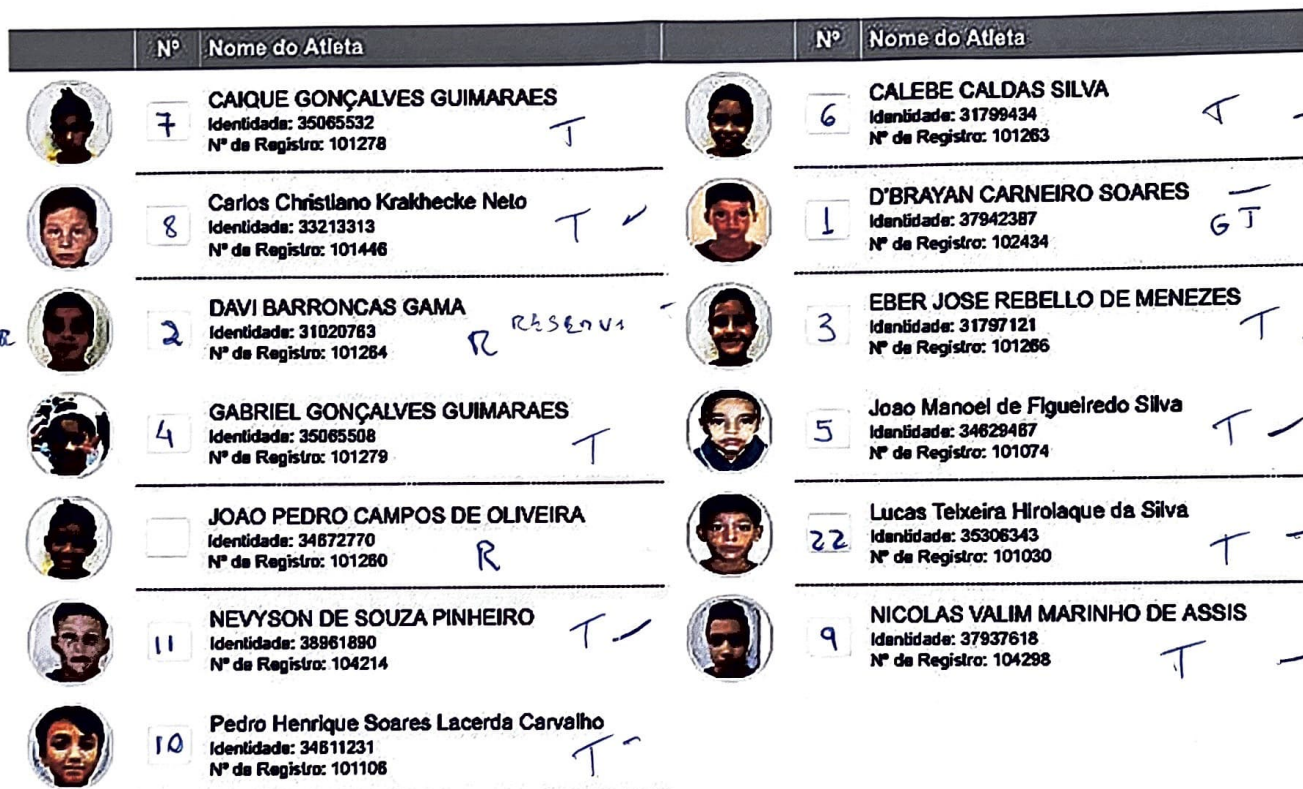 Nº Nome do Atleta
7 CAIQUE GONÇALVES GUIMARAES
Identidade: 35065532
Nº de Registro: 101278 T
8 Carlos Christiano Krakhecke Neto
Identidade: 33213313 T
Nº de Registro: 101446
DAVI BARRONCAS GAMA
R 2 Identidade: 31020763 R RESERVA
Nº de Registro: 101264
GABRIEL GONÇALVES GUIMARAES
4 Identidade: 35065508
Nº de Registro: 101279 T
JOAO PEDRO CAMPOS DE OLIVEIRA
Identidade: 34672770
Nº de Registro: 101280 R
NEVYSON DE SOUZA PINHEIRO T
11 Identidade: 38961890
Nº de Registro: 104214
Pedro Henrique Soares Lacerda Carvalho
10 Identidade: 34611231
Nº de Registro: 101106 T
Nº Nome do Atleta
CALEBE CALDAS SILVA
6 Identidade: 31799434 T
Nº de Registro: 101263
D'BRAYAN CARNEIRO SOARES
1 Identidade: 37942387 G T
Nº de Registro: 102434
EBER JOSE REBELLO DE MENEZES
3 Identidade: 31797121 T
Nº de Registro: 101266
Joao Manoel de Figueiredo Silva
5 Identidade: 34629467 T
Nº de Registro: 101074
Lucas Teixeira Hirolaque da Silva
22 Identidade: 35306343
Nº de Registro: 101030 T
NICOLAS VALIM MARINHO DE ASSIS
9 Identidade: 37937618
Nº de Registro: 104298 T